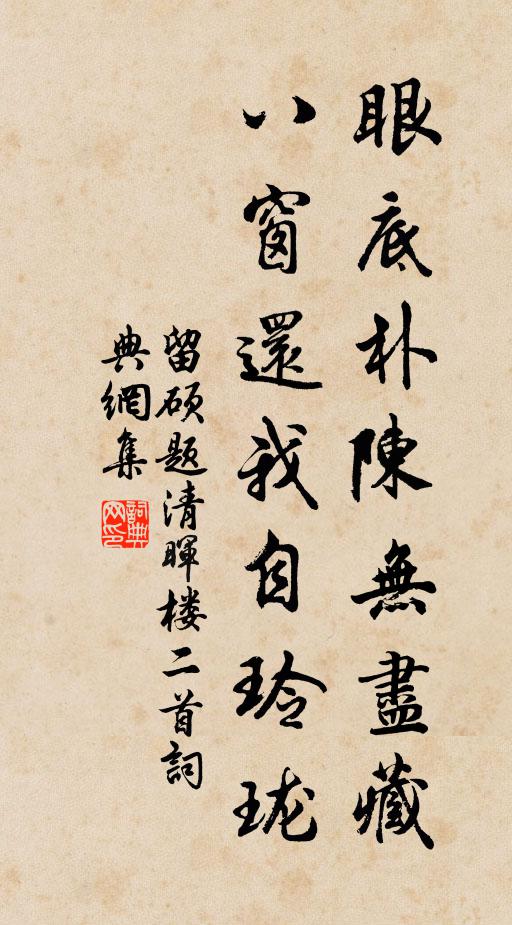 眼底朴陳無盡藏
八窗還我自玲珑
留硕题清暉楼二首詞
典網集
詞典网印